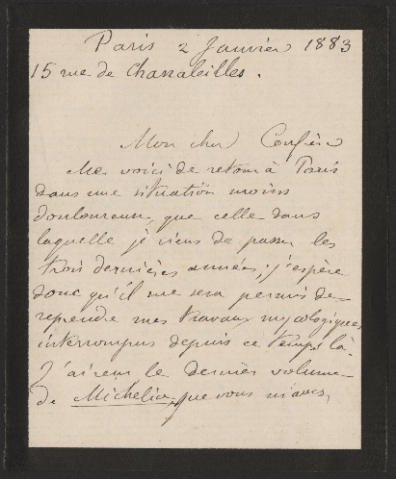 Paris 2 Janvier 1883
15 rue de Chanaleilles.
Mon cher Confrère
Me voici de retour à Paris
dans une situation moins
douloureuse que celle dans
laquelle je viens de passer les
trois dernières années; j'espère
donc qu'il me sera permis de
reprendre mes travaux mycologiques
interrompus depuis ce temps là.
J'ai reçu le dernier volume
de Michelia, que vous m'avez